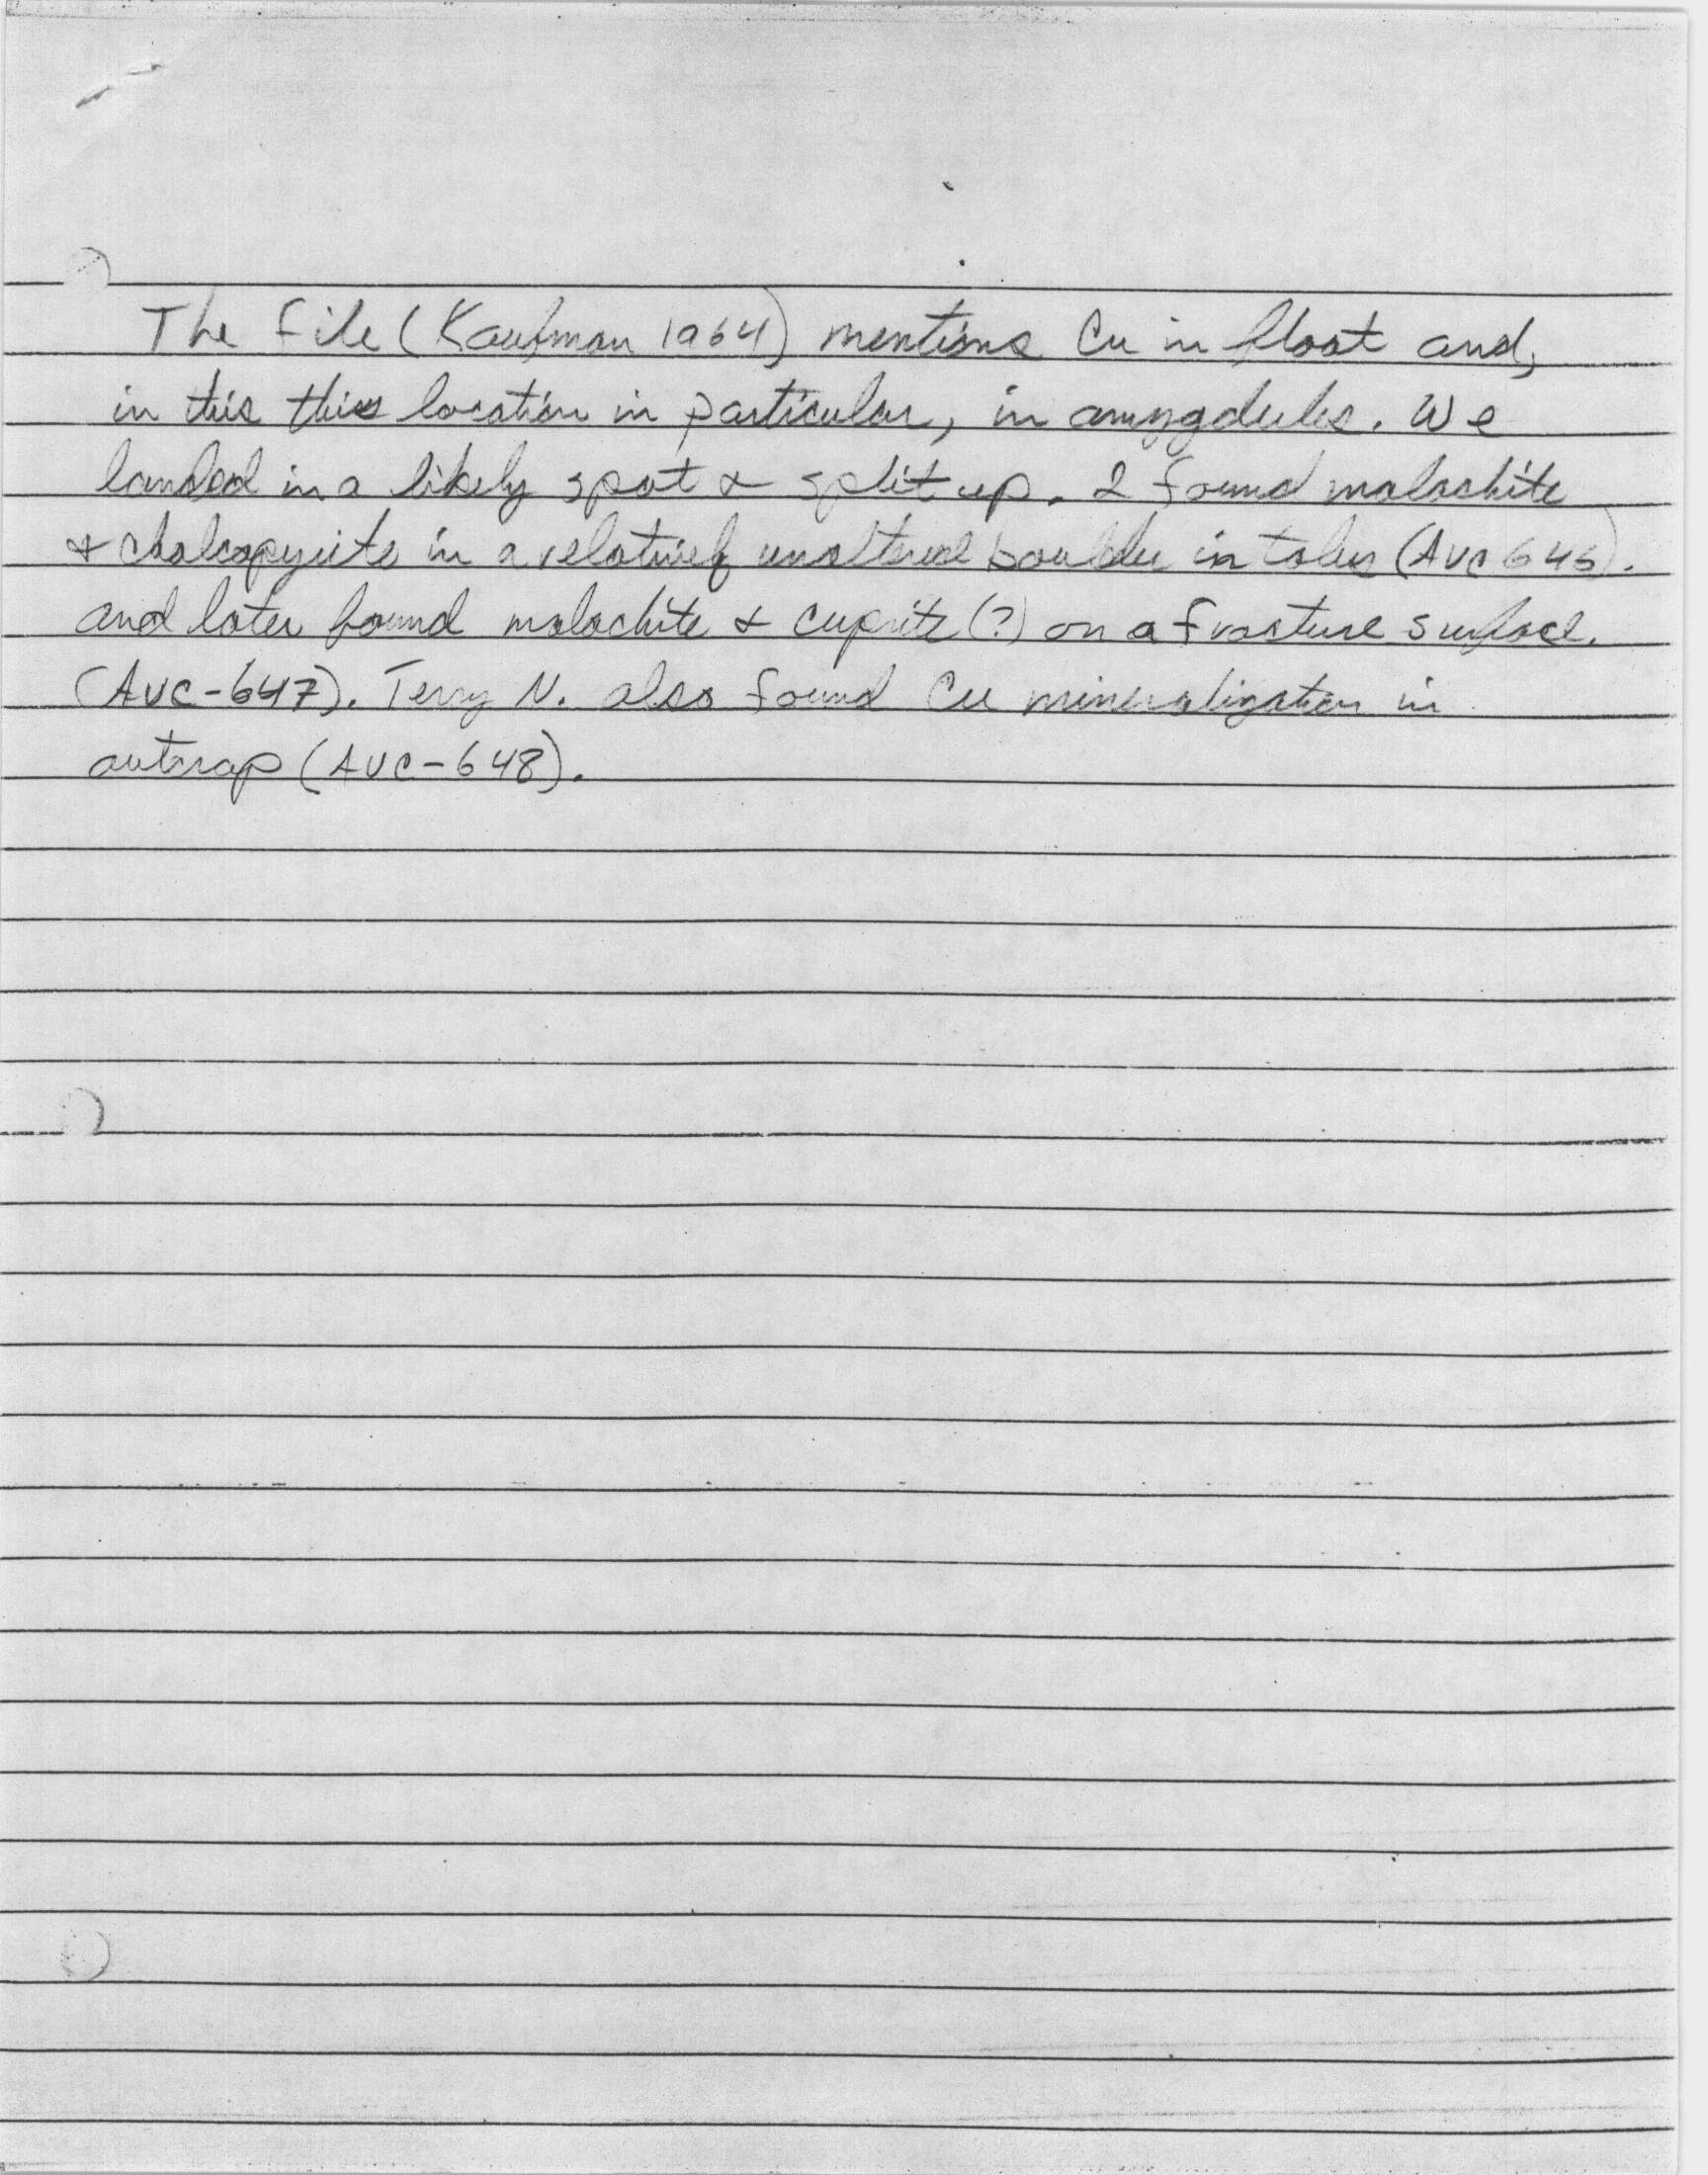 The file (Kaufman 1964) mentions Cu in float and,
in this this location in particular, in amygdules. We
landed in a likely spot & split up. I found malachite
& chalcopyrite in a relatively unaltered boulder in talus (AVC 646).
and later found malachite & cuprite (?) on a fracture surface.
(AVC-647). Terry N. also found Cu mineralization in
outcrop (AVC-648).